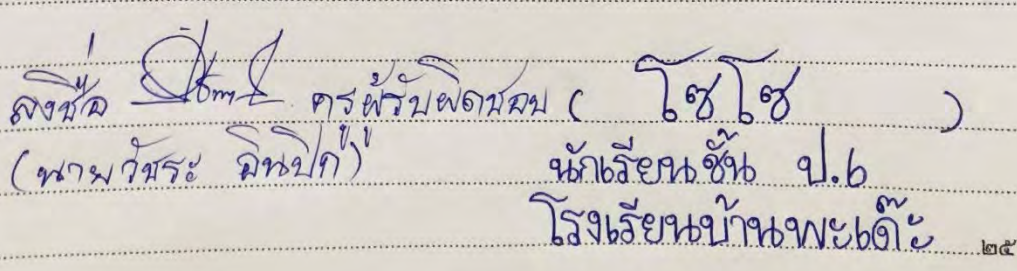 ลงชื่อ ครูผู้รับผิดชอบ ( โซโซ )
(นายวัชระ อินปิก) นักเรียนชั้น ป.๖
โรงเรียนบ้านพะเด๊ะ
๒๕